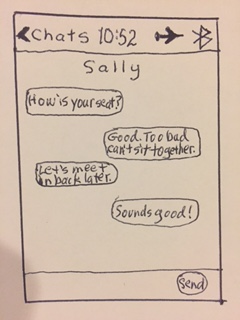 Chats 10:52
Sally
How is your seat?
Good. Too bad
can't sit together.
Let's meet
in back later.
Sounds good!
Send